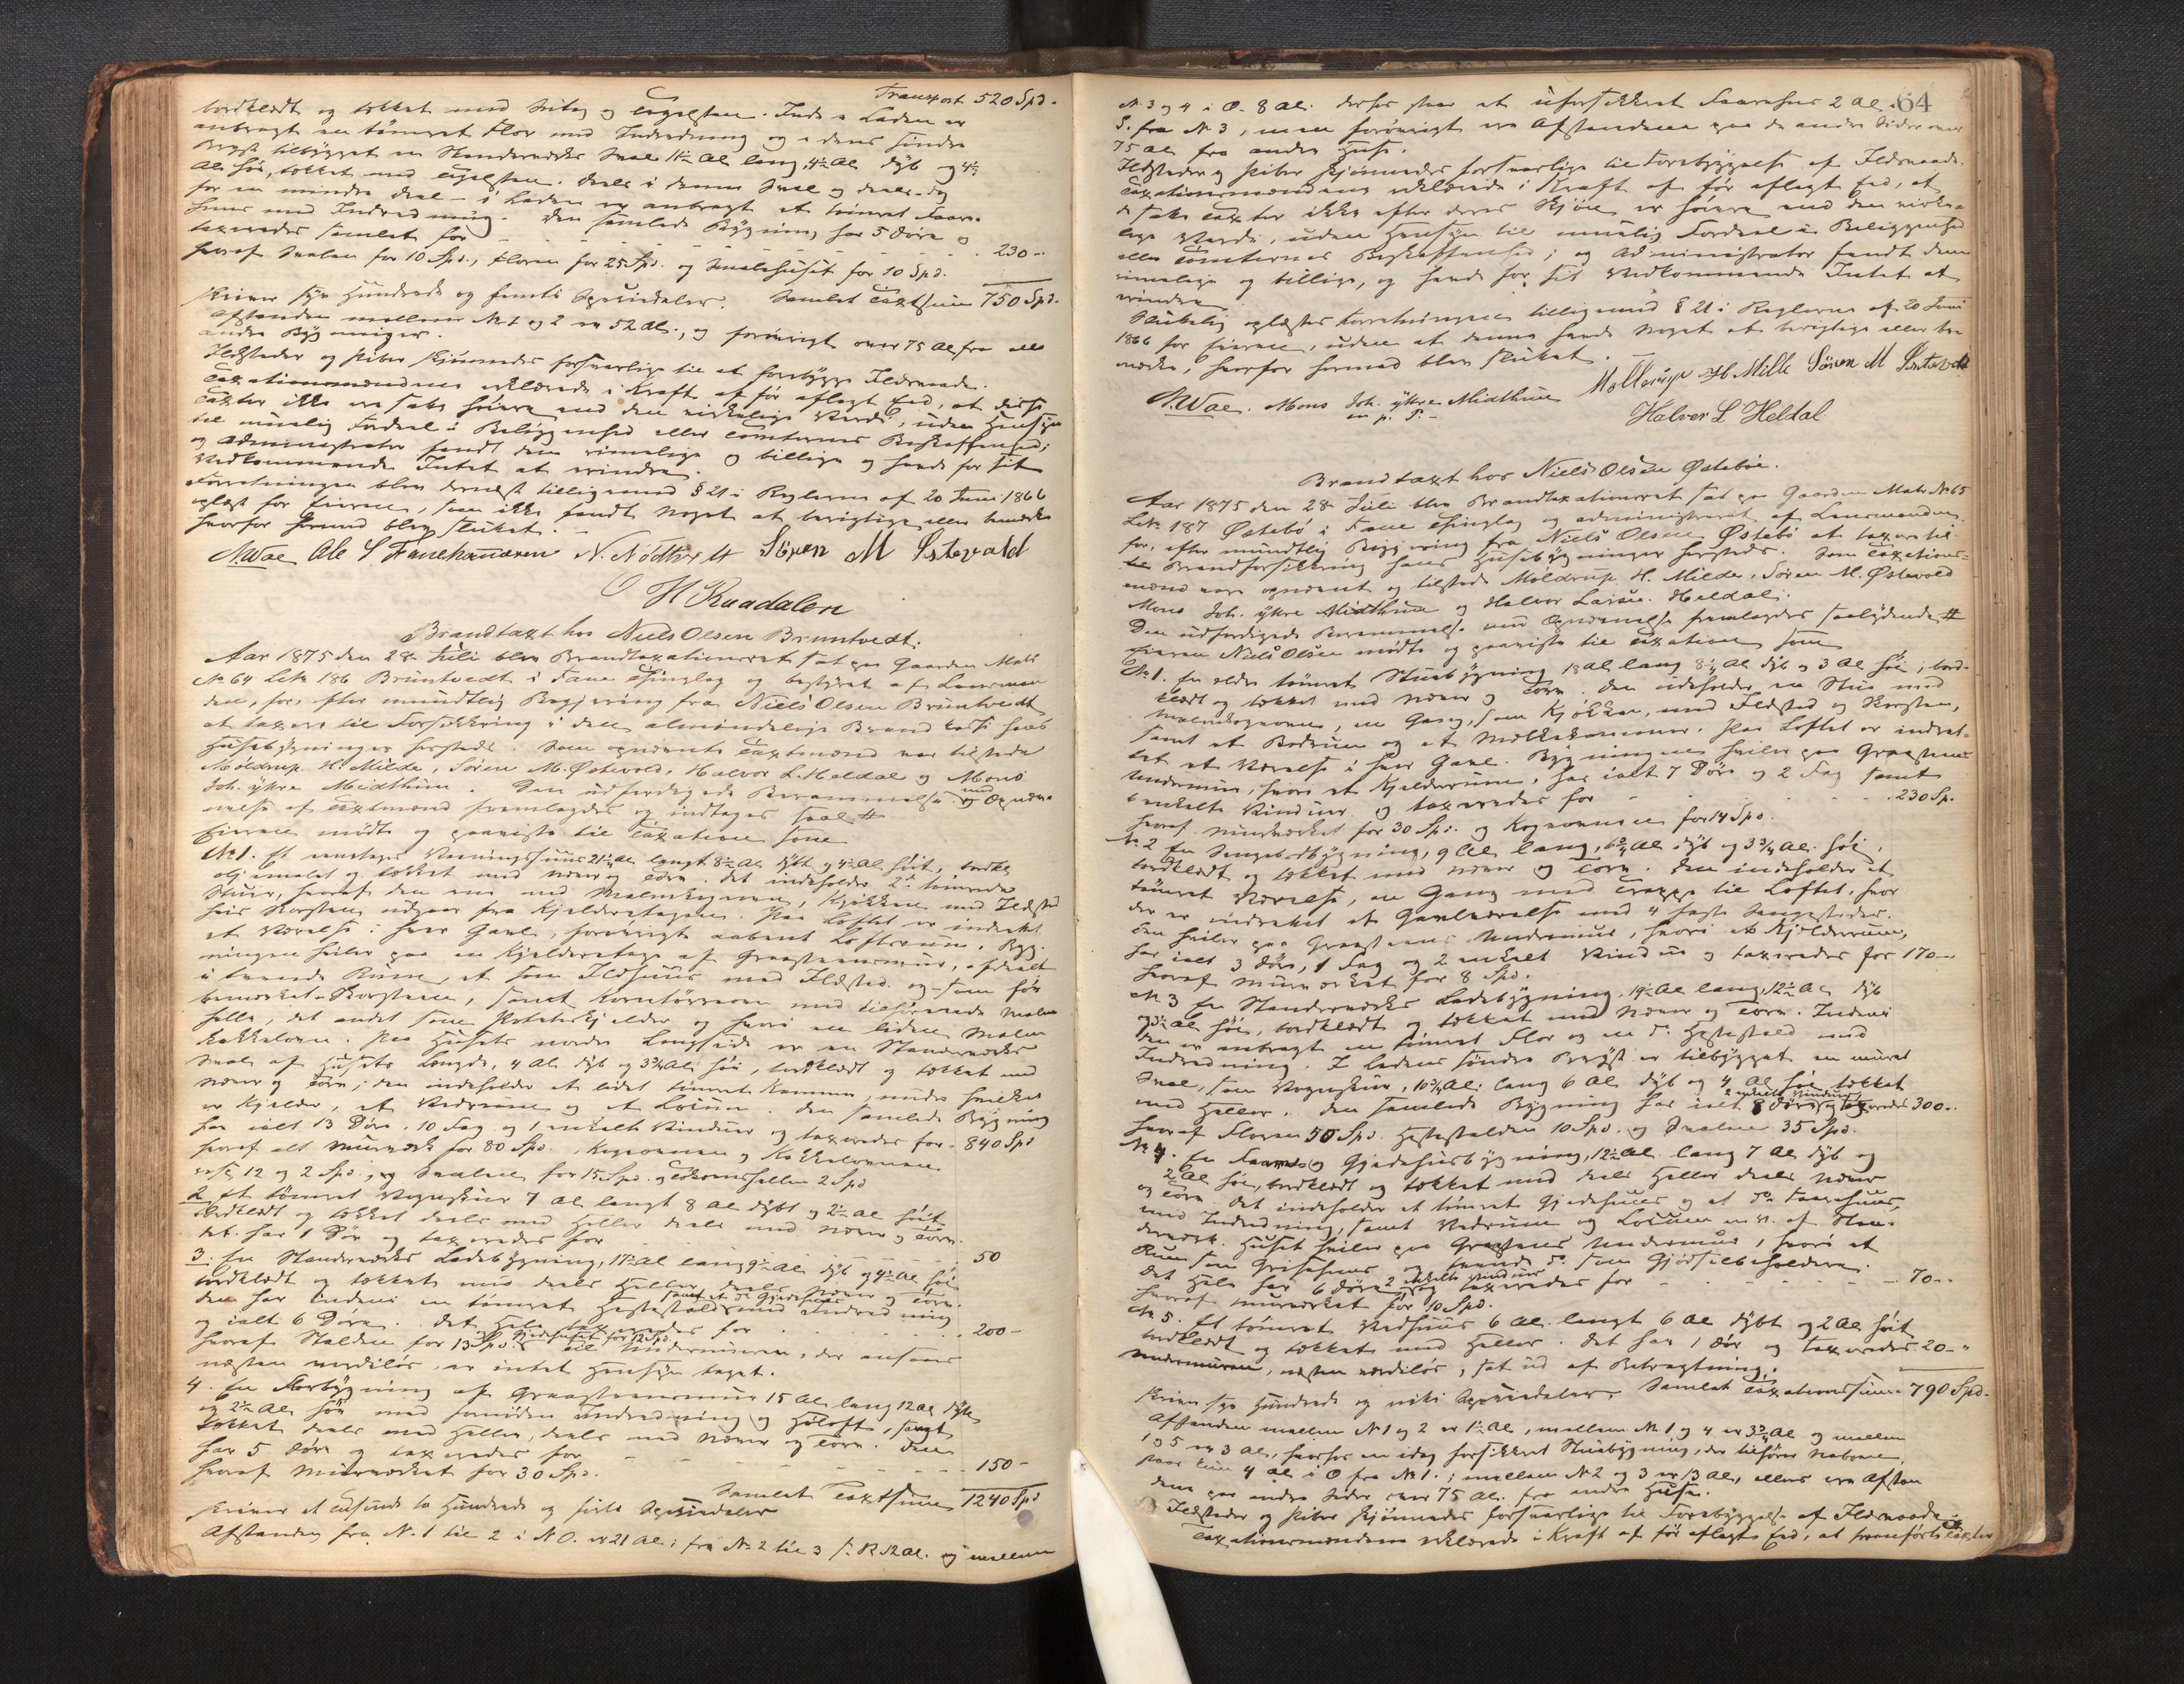 Transport 520 Spd.
bordklædt og tækket med Sutag og Tagsten. Inde i Laden er
anbragt en tømret Flor med Indredning og i dens søndre
Bryst tilbygget en Standerværks Sval 11½ Al lang, 4½ Al dyb og 4½
Al høi, tækket med Tagsten. deels i denne Sval og deels dog
for en mindre Deel i Laden er anbragt et tømret Faare-
huus med Indredning. Den samlede Bygning har 5 Døre og
taxeredes samlet for 230 -
hvoraf Svalen for 10 Spd., Floren for 25 Spd. og Smalehuset for 10 Spd.
skriver syv Hundrede og femti Speciedaler. Samlet Taxtsum 750 Spd.
Afstanden mellem N. 1 og 2 er 52 Al., og forøvrigt over 75 Al fra alle
andre Bygninger.
Ildsteder og Piber skjønnedes forsvarlige til at forebygge Ildsvaade.
Taxationsmændene erklærede i Kraft af før aflagt Ed, at disse
Taxter ikke ere satte høiere end den virkelige Værdi, uden Hensyn
til muelig Fordeel i Beliggenhed eller Tomternes Beskaffenhed;
og Administrator fandt dem rimelige og billige og havde for sit
Vedkommende Intet at erindre.
Forretningen blev dernæst tilligemed § 21 i Reglerne af 20 Juni 1866
oplæst for Eieren, som ikke fandt noget at berigtige eller bemærke
hvorfor hermed blev sluttet.
A. Wae Ole S Fanehammeren N. Nødtvedt Søren M Østevold
O H Raadalen
Brandtaxt hos Niels Olsen Bruntvedt.
Aar 1875 den 28. Juli blev Brandtaxationsret sat paa Gaarden Matr.
No 64 Lb.No 186 Bruntvedt i Fane Thinglag og bestyret af Lensman
den, for, efter mundtlig Begjæring fra Niels Olsen Bruntvedt
at taxere til Forsikkring i den almindelige Brandkasse hans
Huusebygninger hersteds. Som opnævnte Taxtmænd var tilstede
Møldrup H. Milde, Søren M. Østevold, Halvor L. Heldal og Mons
Joh. yttre Midthun. Den udfærdigede Berammelse med Opnæv-
nelse af Taxtmænd fremlagdes og indtages saal. #
Eieren mødte og paaviste til Taxation som
No 1. Et eenetages Vaaningshuus 21¼ Al langt 8½ Al dybt og 4½ Al høit, bordkl.
oljemalet og tækket med Næver og Torv. det indeholder 2de tømrede
Stuer, hvoraf den ene med Malmkogeovn, Kjøkken med Ildsted
hvis Skorsten udgaar fra Kjelderetagen. Paa Loftet er indredet
et Værelse i hver Gavl, forøvrigt aabent Loftsrum. Byg-
ningen hviler paa en Kjelderetage af Graasteensmuur, afdeelt
i tvende Rum, et som Ildhuus med Ildsted og som før
bemærket Skorsten, samt Korntørreovn med tilhørende Malm
helle, det andet som Potetkjelder og hvori en liden Malm
kakkelovn. Paa Husets nordre Langside er en Standerværks
Sval af Husets Længde, 4 Al dyb og 3¾ Al høi, bordklædt og tækket med
Næver og Torv; den indeholder et lidet tømret Kammer, under hvilket
er Kjelder, et Vedrum og et Locum. Den samlede Bygning
har ialt 13 Døre, 10 Fag og 1 enkelt Vinduer og taxeredes for 840 Spd
hvoraf alt Muurværk for 80 Spd., Kogeovnen og Kakkelovnen
resp. 12 og 2 Spd., og Svalen for 15 Spd. og Tørkovnshellen 2 Spd
2. Et tømret Vognskuur 7 Al langt 8 Al dybt og 2½ Al høit
bordklædt og tækket deels med Heller deels med Næver og Torv.
det har 1 Dør og taxeredes for 50
3. En Standerværks Ladebygning, 17½ Al lang 9½ Al dyb og 4½ Al høi
bordklædt og tækket med deels Heller deels Næver og Torv.
den har indeni en tømret Hestestald samt et do Gjedehuus med Indredning
og ialt 6 Døre. Det Hele taxeredes for 200 -
hvoraf Stalden for 13 Spd. Gjedehuset for 12 Spd. til Undermuren, der ansees
næsten værdiløs, er intet Hensyn taget.
4. En Florbygning af Graasteensmuur 15 Al. lang 12 Al dyb
og 2½ Al. høi med fornøden Indredning og Høloft, samt
tækket deels med Heller, deels med Næver og Torv. den
har 5 Døre og taxeredes for 150 -
hvoraf Muurværket for 30 Spd.
Samlet Taxtsum 1240 Spd
skriver et Tusinde to Hundrede og firti Speciedaler
Afstanden fra N. 1 til 2 i N O. er 21 Al; fra No 2 til 3 12 Al. og mellem
64
N. 3 og 4 i O. 8 Al. derhos staar et uforsikkret Faarehus 2 Al i
S. fra N 3, men forøvrigt ere Afstandene paa de andre Sider over
75 Al fra andre Huse.
Ildsteder og Piber skjønnedes forsvarlige til Forebyggelse af Ildsvaade.
Taxationsmændene erklærede i Kraft af før aflagt Ed, at
de satte Taxter ikke efter deres Skjøn er høiere end den virke-
lige Værdi, uden Hensyn til muelig Fordeel i Beliggenhed
eller Tomternes Beskaffenhed; og Administrator fandt dem
rimelige og billige, og havde for sit Vedkommende Intet at
erindre
Slutelig oplæstes Forretningen tilligemed § 21 i Reglerne af 20 Juni
1866 for Eieren, uden at denne havde Noget at berigtige eller be-
mærke, hvorfor hermed blev sluttet.
A. Wae. Mons Joh. yttre Midthun Møllerup H Mille Søren M Østevold
m. p. P. Halvor L Heldal
Brandtaxt hos Niels Olsen Østebøe.
Aar 1875 den 28. Juli blev Brandtaxationsret sat paa Gaarden Matr. No 65
Lb.No 187 Østebø i Fane Thinglag og administreret af Lensmanden,
for, efter mundtlig Begjæring fra Niels Olsen Østebø at taxere til
Brandforsikkring hans Huusebygninger hersteds. Som Taxations-
mænd vare opnævnt og tilstede Møldrup H. Milde, Søren M. Østevold
Mons Joh. yttre Midthun og Halvor Larsen Heldal.
Den udfærdigede Berammelse med Opnævnelse fremlagdes saalydende #
Eieren Niels Olsen mødte og paaviste til Taxation som
No 1. En ældre tømret Stuebygning 18 Al lang 8¼ Al dyb og 3 Al høi, bord-
klædt og tækket med Næver og Torv. Den indeholder en Stue med
Malmkogeovn, en Gang, som Kjøkken, med Ildsted og Skorsten,
samt et Bodrum og et Melkekammer. Paa Loftet er indred-
det et Værelse i hver Gavl. Bygningen hviler paa Graasteens
Undermuur, hvori et Kjelderrum, har ialt 7 Døre og 2 Fag samt
6 enkelte Vinduer og taxeredes for 230 Sp.
hvoraf Muurværket for 30 Spd. og Kogeovnen for 14 Spd.
No 2 En Sengebodbygning, 9 Al lang, 6¾ Al dyb og 3¾ Al. høi,
bordklædt og tækket med Næver og Torv. den indeholder et
tømret Værelse, en Gang med Trappe til Loftet, hvor
der er indredet et Gavlværelse med 4 faste Sengesteder.
Den hviler paa Graasteens Undermuur, hvori et Kjelderrum,
har ialt 3 Døre, 1 Fag og 2 enkelt Vinduer og taxeredes for 170 -
hvoraf Muurværket for 8 Spd.
N. 3 En Standerværks Ladebygning, 19½ Al lang, 12½ Al dyb
og 3½ Al høi, bordklædt og tækket med Næver og Torv. Indeni
den er anbragt en tømret Flor og en do Hestestald med
Indredning. I Ladens søndre Bryst er tilbygget en muret
Sval, som Vognskuur, 10¾ Al. lang 6 Al dyb og 4 Al høi tækket
med Heller. Den samlede Bygning har ialt 8 Døre 2 enkelte Vinduer og taxeredes 300 -
hvoraf Floren 50 Spd. Hestestalden 10 Spd. og Svalen 35 Spd.
No 4. En Faare og Gjedehuusbygning, 12½ Al. lang 7 Al dyb og
2½ Al høi, bordklædt og tækket med deels Heller deels Næver
og Torv. Det indeholder et tømret Gjedehuus og et do Faarehuus,
med Indredning, samt Vedrum og Locum m. v. af Stan-
derværk. Huset hviler paa Graasteens Undermuur, hvori et
Rum som Grisehuus og tvende do som Gjødselbeholdere.
Det Hele har 6 Døre 2 enkelte Vinduer og taxeredes for 70 -
hvoraf Muurværket for 10 Spd.
No 5. Et tømret Vedhuus 6 Al. langt 6 Al dybt og 2 Al høit
bordklædt og tækket med Heller. Det har 1 Dør og taxeredes 20 -
Undermuren, næsten værdiløs, sat ud af Betragtning.
skriver syv Hundrede og niti Speciedaler. Samlet Taxationssum 790 Spd.
Afstanden mellem N 1 og 2 er 1½ Al, mellem N. 1 og 4 er 3¾ Al og mellem
1 og 5 er 3 Al, hvorhos en idag forsikkret Stuebygning, der tilhører Naboen,
staar kun 4 Al i O fra No 1.; mellem No 2 og 3 er 13 Al, ellers ere Afstan
dene paa andre Sider over 75 Al. fra andre Huse.
Ildsteder og Piber skjønnedes forsvarlige til Forebyggelse af Ildsvaade
Taxationsmændene erklærede i Kraft af før aflagt Ed, at fremførte Taxter